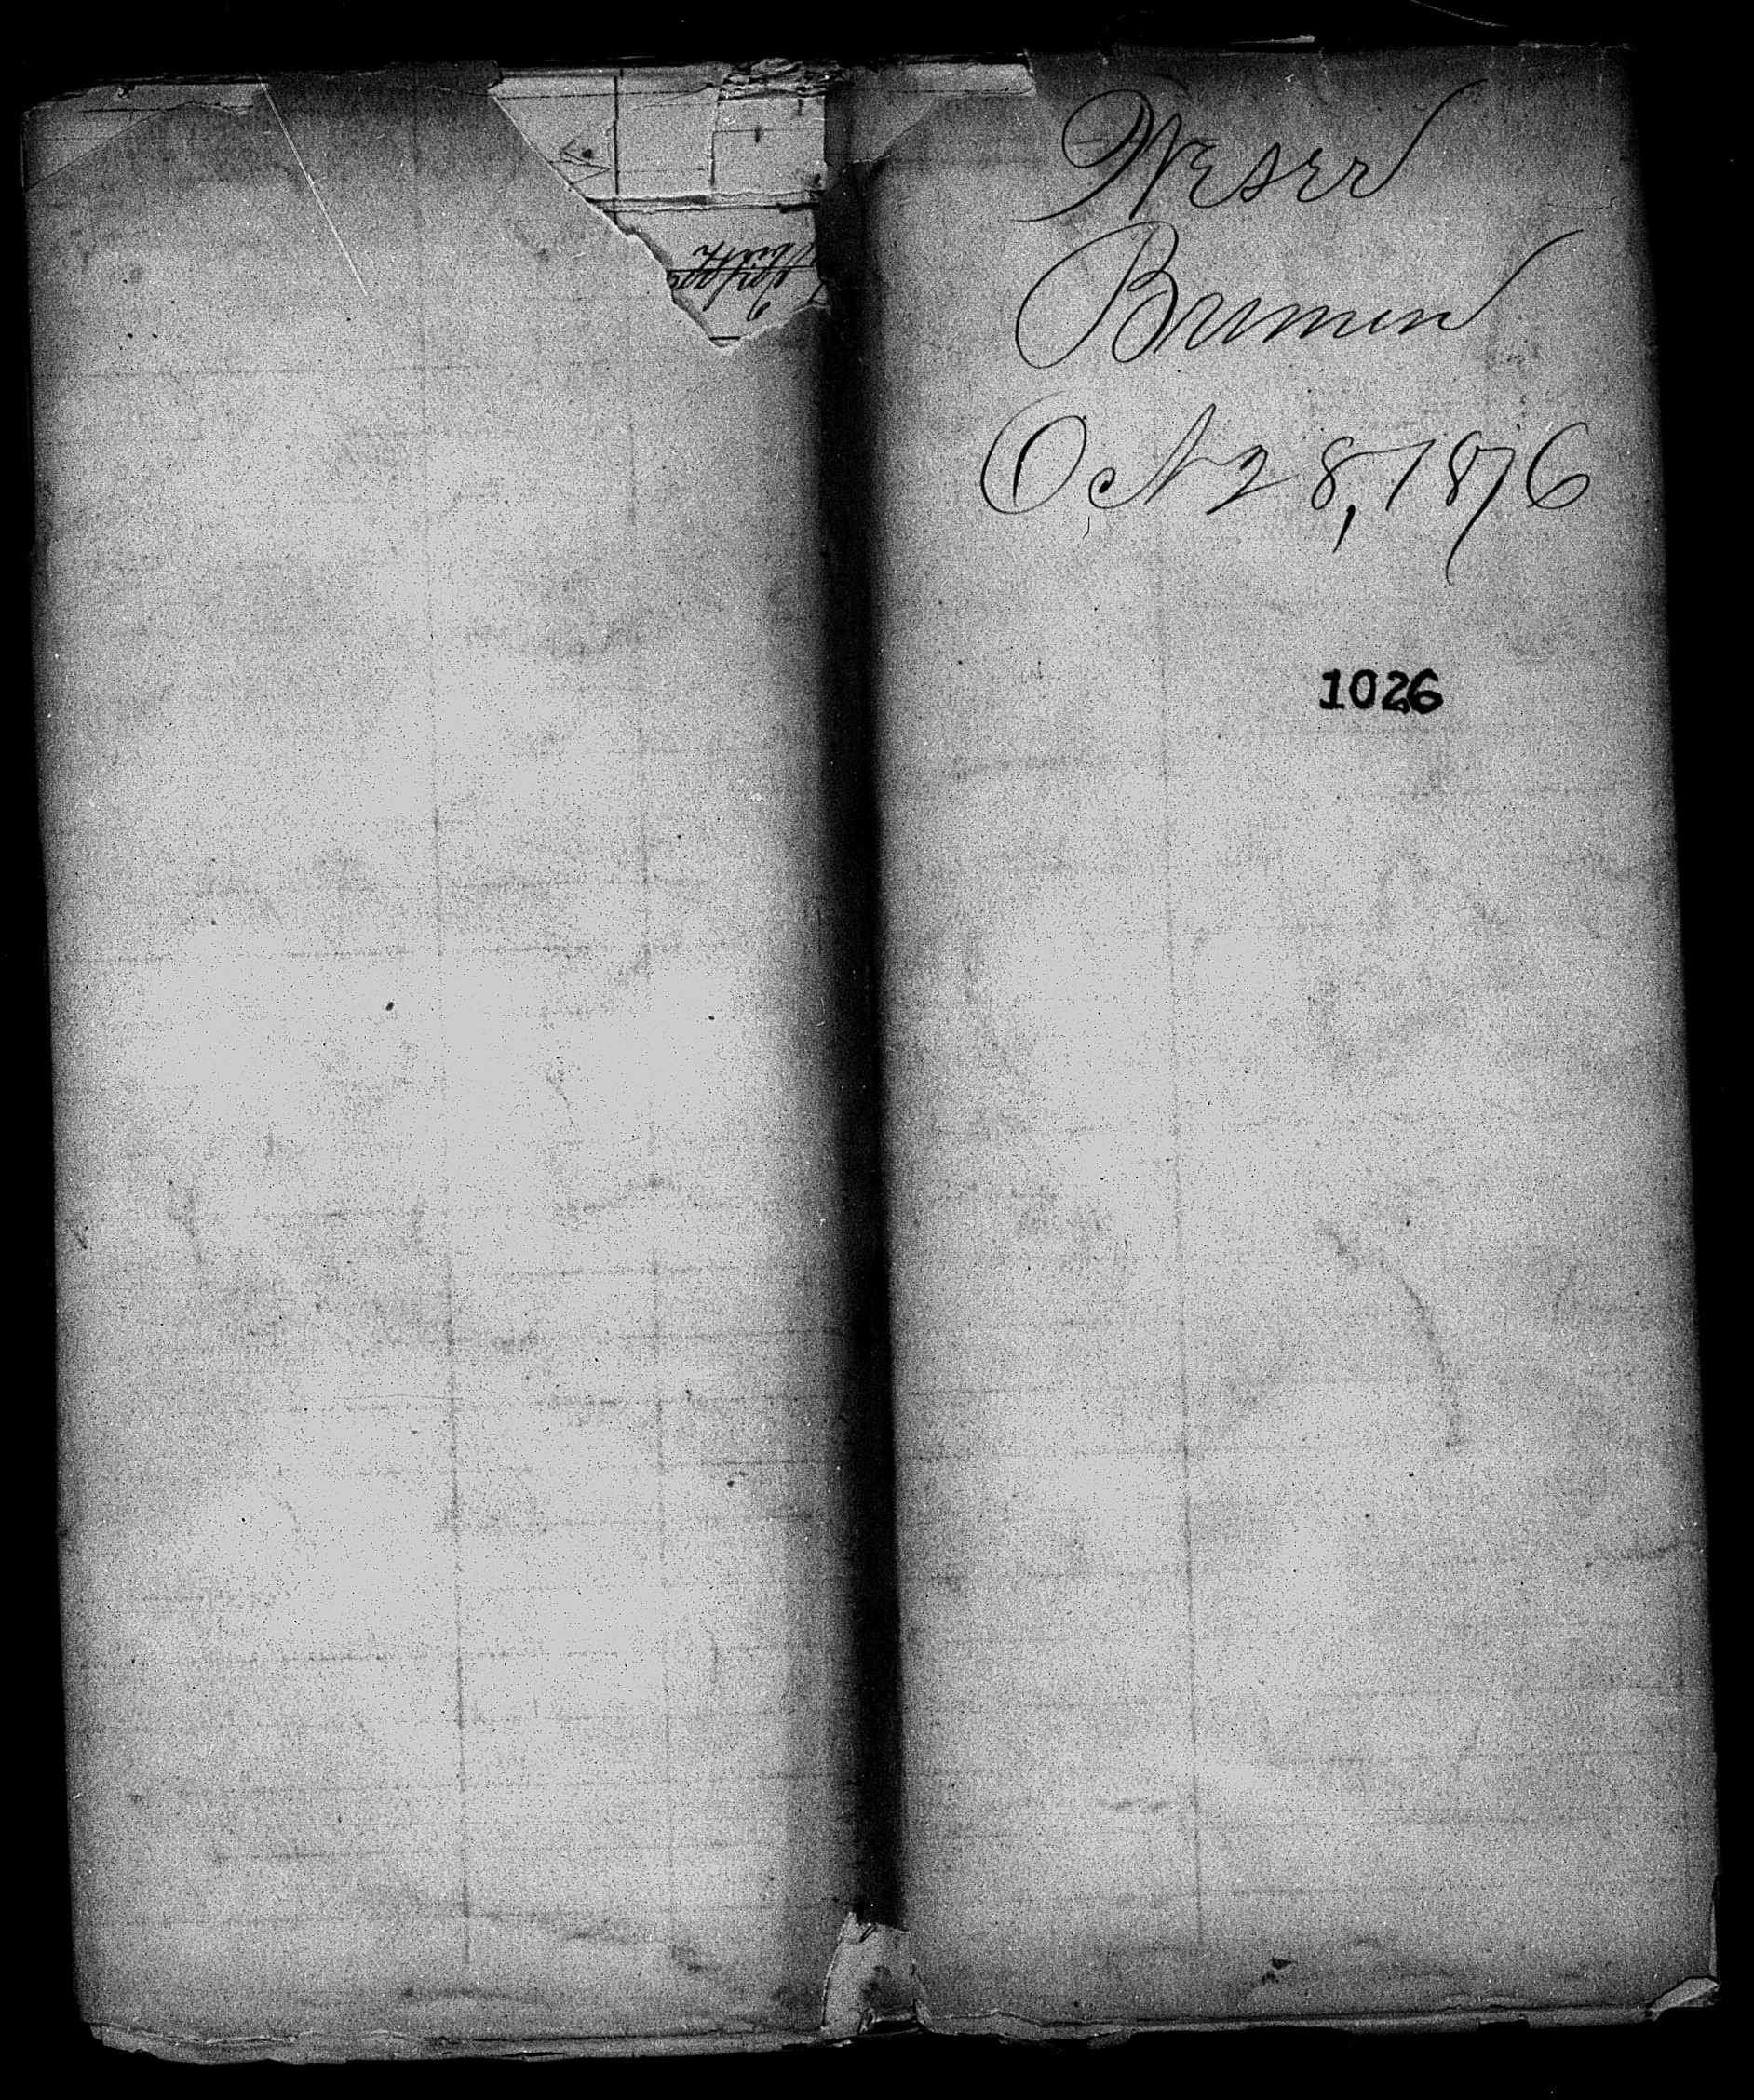 Weser
Bremen
Oct 28, 1876
1026